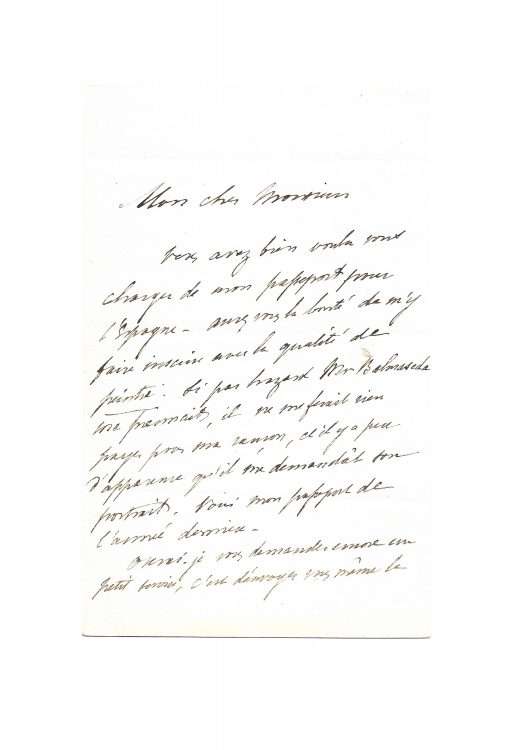 Mon cher Monsieur
vous avez bien voulu vous
charger de mon passeport pour
l'Espagne - aurez vous la bonté de m'y
faire inscrire avec la qualité de
peintre. Si par hazard Mr Balmaseda
me prenait, il ne me ferait rien
payer pour ma rançon, et il y a peu
d'apparence qu'il me demandât son
portrait. Voici mon passeport de
l'année dernière -
oserai-je vous demander encore un
petit service, c'est d'envoyer vous même le